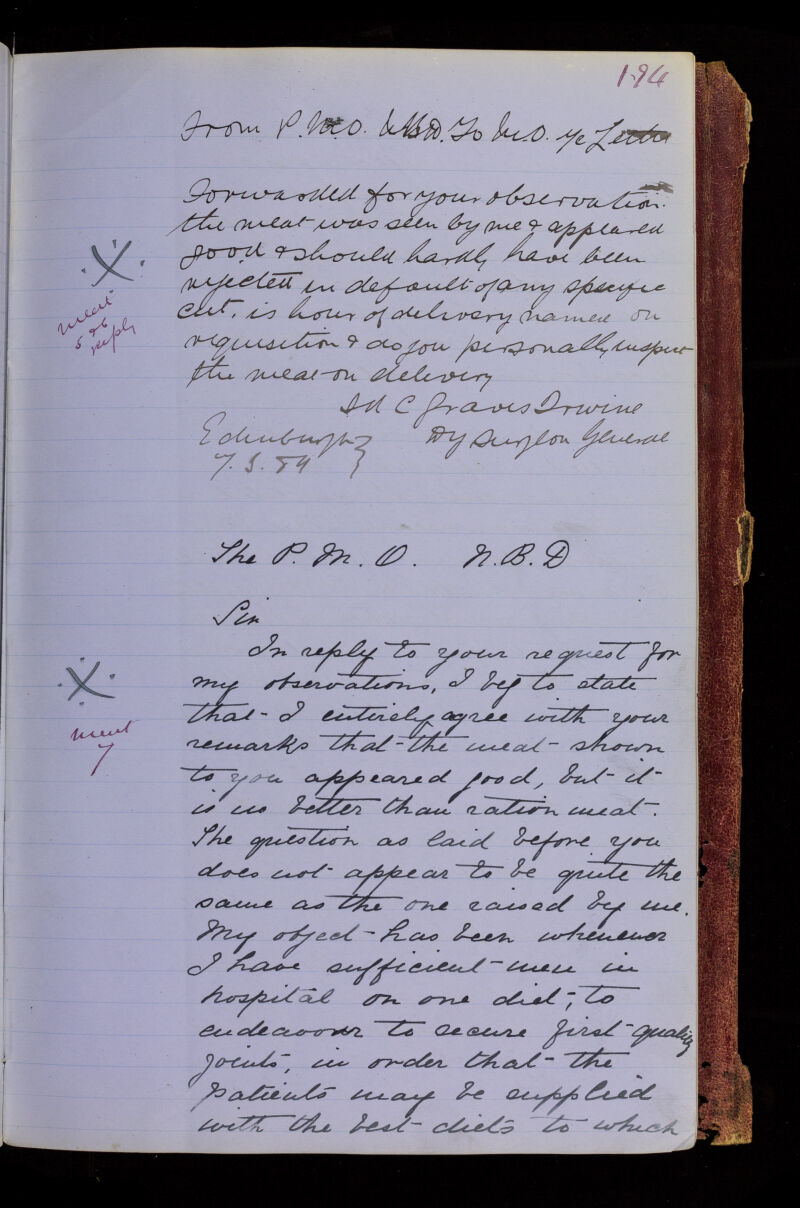 194
From P.M.O. N.B.D. To M.O. i/c
Forwarded for your observation.
the meat was seen by me & appeared
good & should hardly have been
rejected in default of any specific
cut, is hour of delivery named on
requisition & do you personally inspect
the meat on delivery
meat
5 & 6
reply
C Graves Irwine
Dy Surgeon General
Edinburgh }
7. 3. 84
The P. M. O. N. B. D
Sir
In reply to your request for
my observations, I beg to state
that I entirely agree with your
remarks that the meat shown
to you appeared good, but it
is no better than ration meat.
The question as laid before you
does not appear to be quite the
same as the one raised by me.
My object has been whenever
I have sufficient men in
hospital on one diet, to
endeavour to secure first quality
joints, in order that the
patients may be supplied
with the best diets to which
meat
7